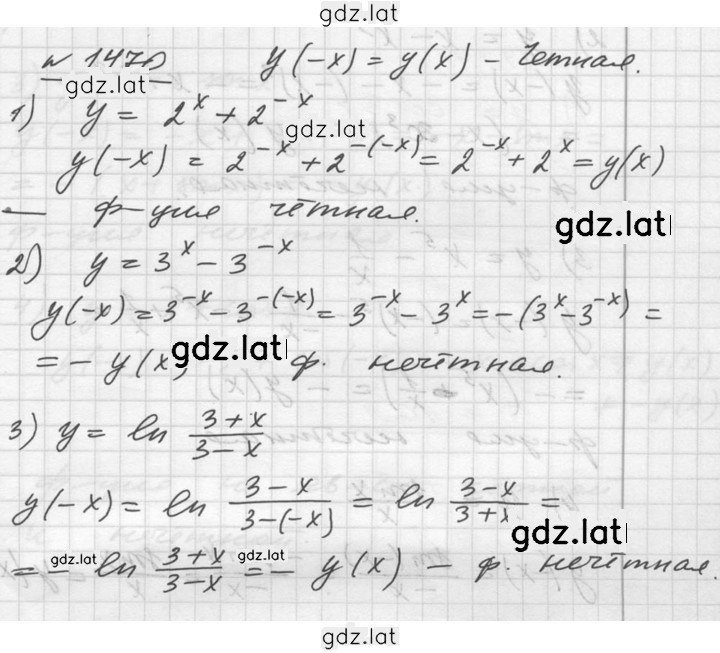 gdz.lat
№ 1470 y(-x) = y(x) - четная.
gdz.lat
1) y = 2^x + 2^{-x}
gdz.lat
y(-x) = 2^{-x} + 2^{-(-x)} = 2^{-x} + 2^x = y(x)
— ф-ция чётная.
gdz.lat
2) y = 3^x - 3^{-x}
y(-x) = 3^{-x} - 3^{-(-x)} = 3^{-x} - 3^x = -(3^x - 3^{-x}) =
= - y(x) ф. нечётная.
gdz.lat
3) y = ln \frac{3+x}{3-x}
y(-x) = ln \frac{3-x}{3-(-x)} = ln \frac{3-x}{3+x} =
gdz.lat
gdz.lat gdz.lat
= - ln \frac{3+x}{3-x} = - y(x) - ф. нечётная.
gdz.lat